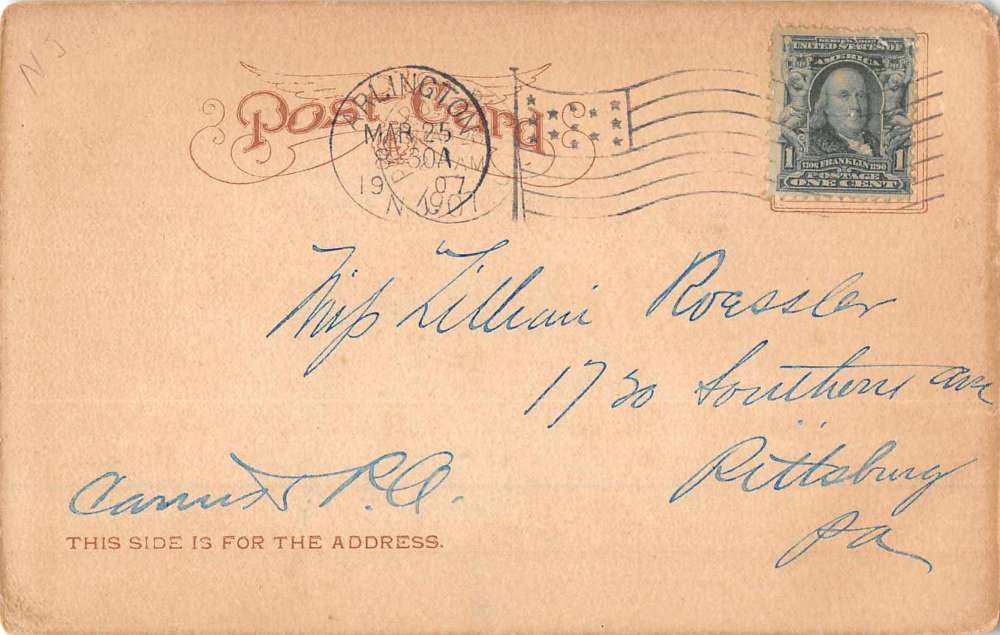 NJ
Post Card
ARLINGTON
MAR 25
8-30A
1907
N.J.
SERIES 1902
UNITED STATES OF
AMERICA
1 1706 FRANKLIN 1790 1
POSTAGE
ONE CENT
Miss Lillian Roessler
1730 Southern ave
Pittsburg
Pa
P.O.
THIS SIDE IS FOR THE ADDRESS.